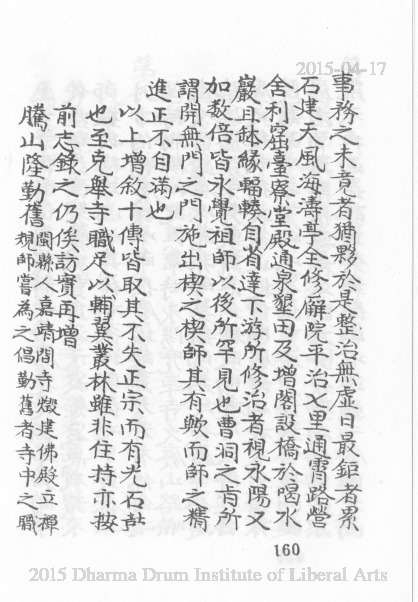 2015-04-17
事務之未竟者猶夥於是整治無虛日最鉅者累
石建天風海濤亭全修廨院平治七里通霄路營
舍利窟臺寮堂殿通泉墾田及增閣設橋於喝水
巖且缽緣輻輳自省達下游所修治者視水陽又
加数倍皆永覺祖師以後所罕見也曹洞之肯所
謂開無門之門施出楔之楔師其有歟而師之精
進正不自滿也
以上增敘十傳皆取其不失正宗而有光石鼓
也至克舉寺職足以輔翼叢林雖非住持亦按
前志錄之仍俟訪實再增
騰山隆勤舊 閩縣人嘉靖間寺燬建佛殿立禪
規師嘗為之倡勤舊者寺中之職
160
2015 Dharma Drum Institute of Liberal Arts